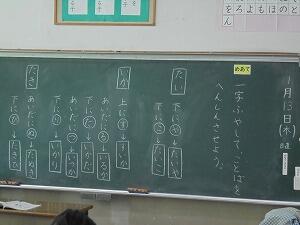 1月13日(木)
日直
めあて
一字ふやして、ことばを
へんしんさせよう。
たい
下にや→たいや
下にこ→たいこ
いか
上にす→すいか
あいだにる→いるか
下にだ→いかだ
あいだにつ→いつか
下にり→いかり
たき
あいだにぬ→たぬき
下にび→たきび